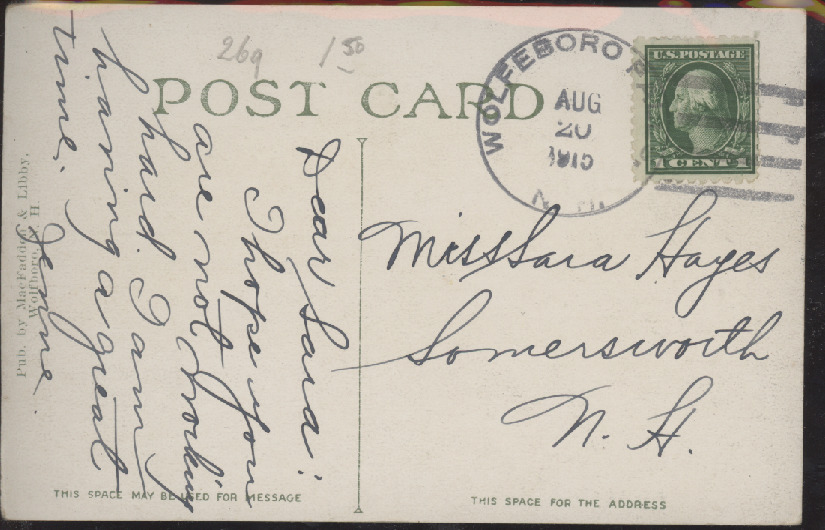 269
1 50
POST CARD
WOLFEBORO
AUG
20
N. H.
U.S. POSTAGE
1 CENT 1
Dear Sara:
I hope you
are not working
hard. I am
having a great
time.
Jennie.
Pub. by MacFadden & Libby,
Wolfboro, N. H.
Miss Sara Hayes
Somersworth
N. H.
THIS SPACE MAY BE USED FOR MESSAGE
THIS SPACE FOR THE ADDRESS